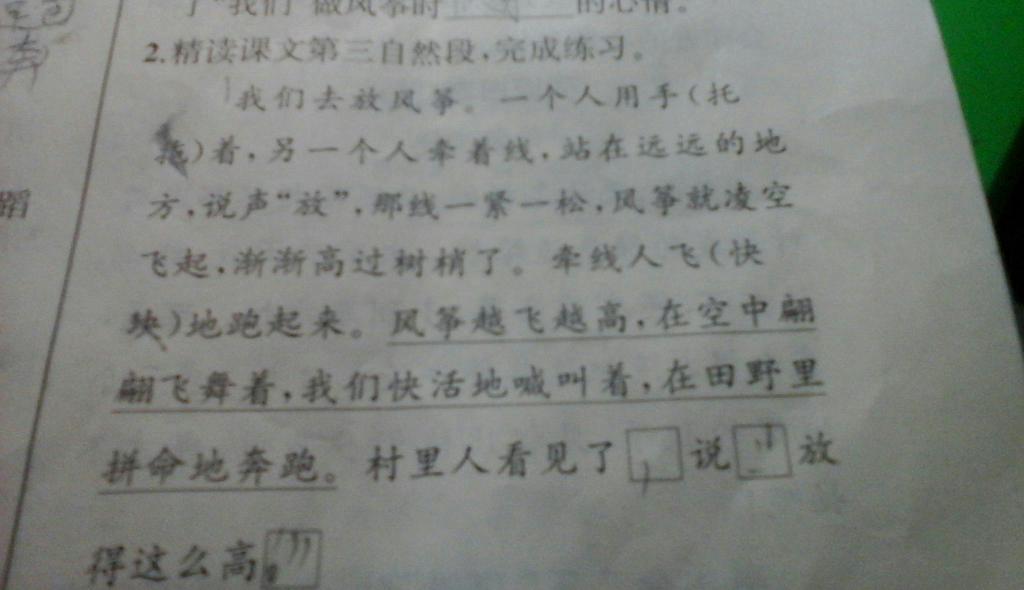 了“我们”做风筝时 的心情。
2.精读课文第三自然段,完成练习。
我们去放风筝。一个人用手(托
拖)着,另一个人牵着线,站在远远的地
方,说声“放”,那线一紧一松,风筝就凌空
飞起,渐渐高过树梢了。牵线人飞(快
块)地跑起来。风筝越飞越高,在空中翩
翩飞舞着,我们快活地喊叫着,在田野里
拼命地奔跑。村里人看见了,说:“放
得这么高!”
蹈